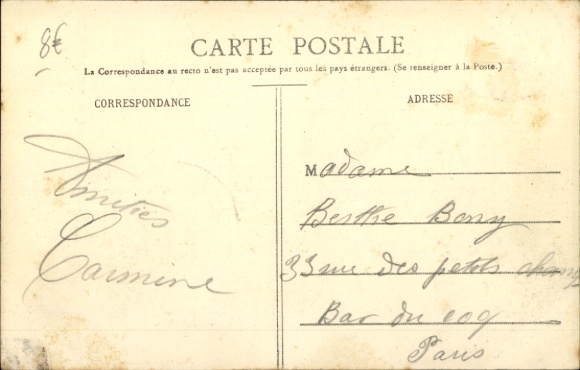 8€
CARTE POSTALE
La Correspondance au recto n'est pas acceptée par tous les pays étrangers. (Se renseigner à la Poste.)
CORRESPONDANCE
Amitiés
Carmine
ADRESSE
Madame
Berthe Bony
33 rue des petits champs
Bar du coq
Paris